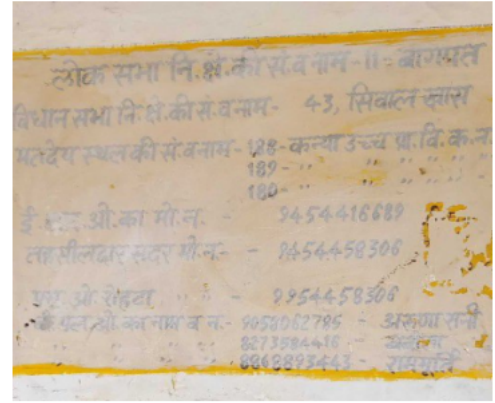 लोक सभा नि.क्षे.की सं.व नाम-11- बागपत
विधान सभा नि.क्षे.की सं.व नाम- 43, सिवाल खास
मतदेय स्थल की सं.व नाम- 188- कन्या उच्च प्रा.वि.क.न.
189- " " " " "
180- " " " " "
ई. आर. ओ. का मो.न. - 9454416689
तहसीलदार सदर मो.न.- - 9454458306
एस. ओ. रोहटा " " - 9954458306
बी एल ओ का नाम व न.- 9058062795 - अरुणा रानी
" " " " " - 8273584416 -
" " " " " - 8868893443 - राममूर्ति